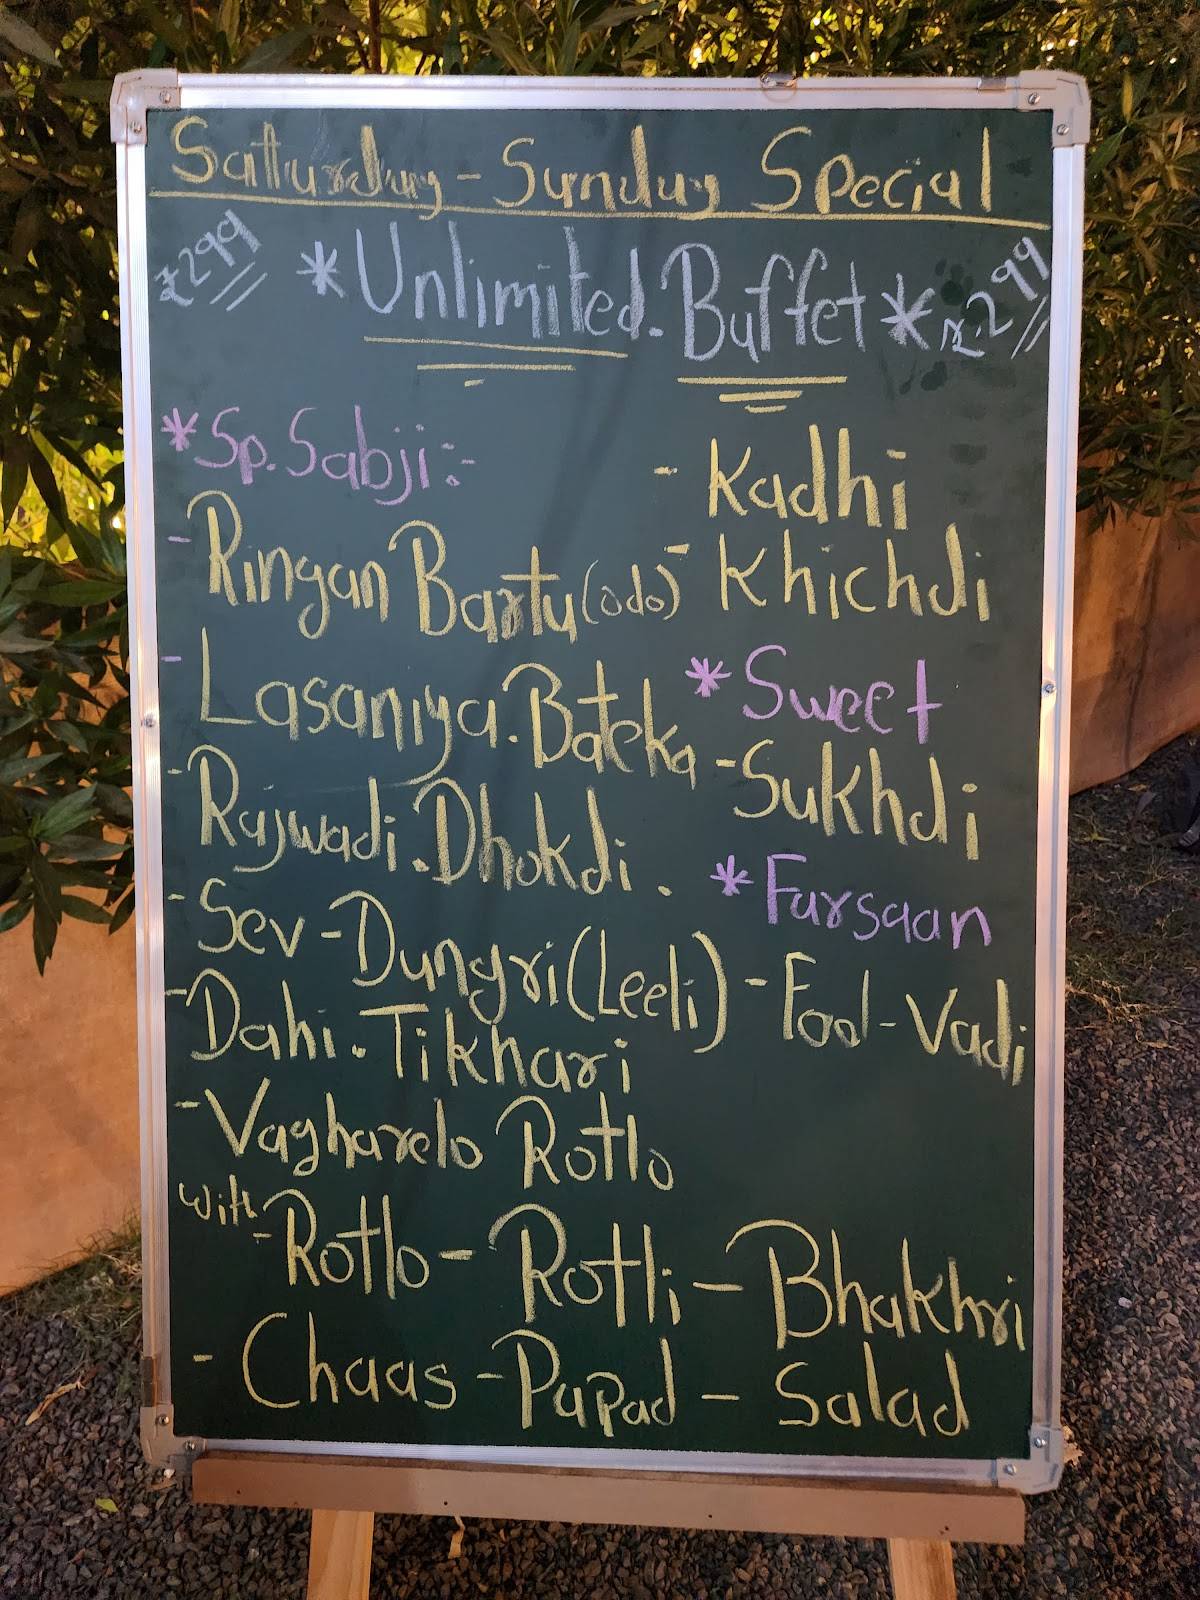 Satturday - Sunday Special
₹299 * Unlimited. Buffet * ₹.299
* Sp. Sabji :-
- Ringan Bartu (odo)
- Lasaniya. Bateka
- Rajwadi. Dhokdi.
- Sev - Dungri (Leeli)
- Dahi. Tikhari
- Vagharelo Rotlo
- Kadhi
- Khichdi
* Sweet
- Sukhdi
* Farsaan
- Fool - Vadi
with - Rotlo - Rotli - Bhakhri
- Chaas - Papad - Salad